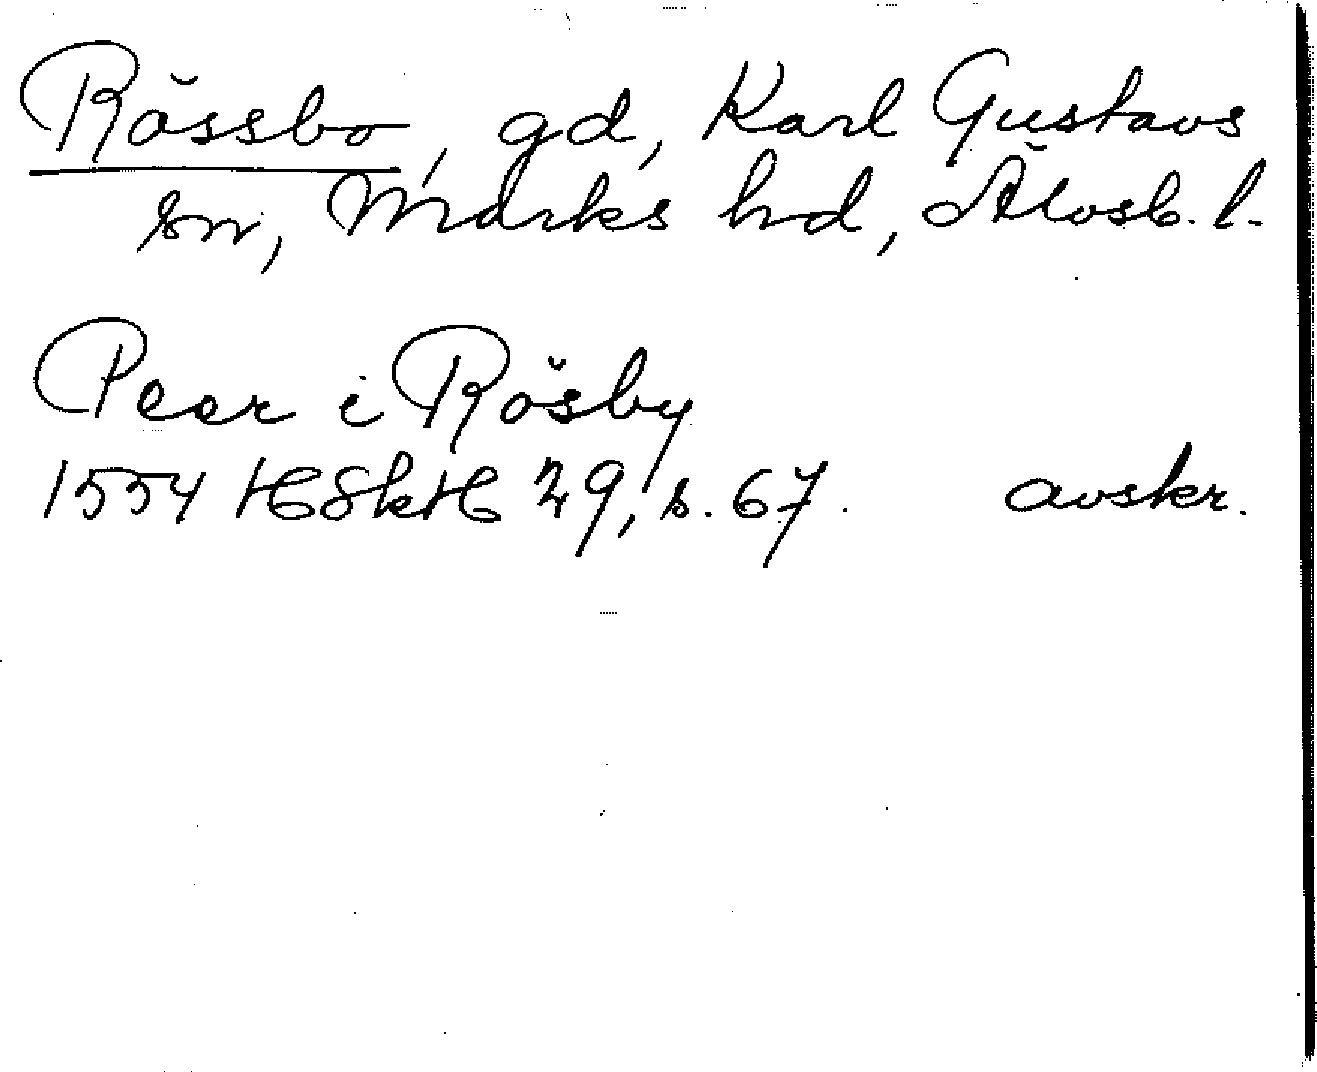 Rössbo, gd, Karl Gustavs
sn, Marks hd, Älvsb. l.
Peer i Rösby
1554 HSkH 29, s. 67. avskr.